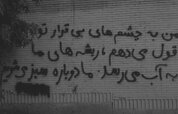 من به چشم های بی قرار تو
قول می دهم ، ریشه های ما
به آب می رسد . ما دوباره سبز می شویم